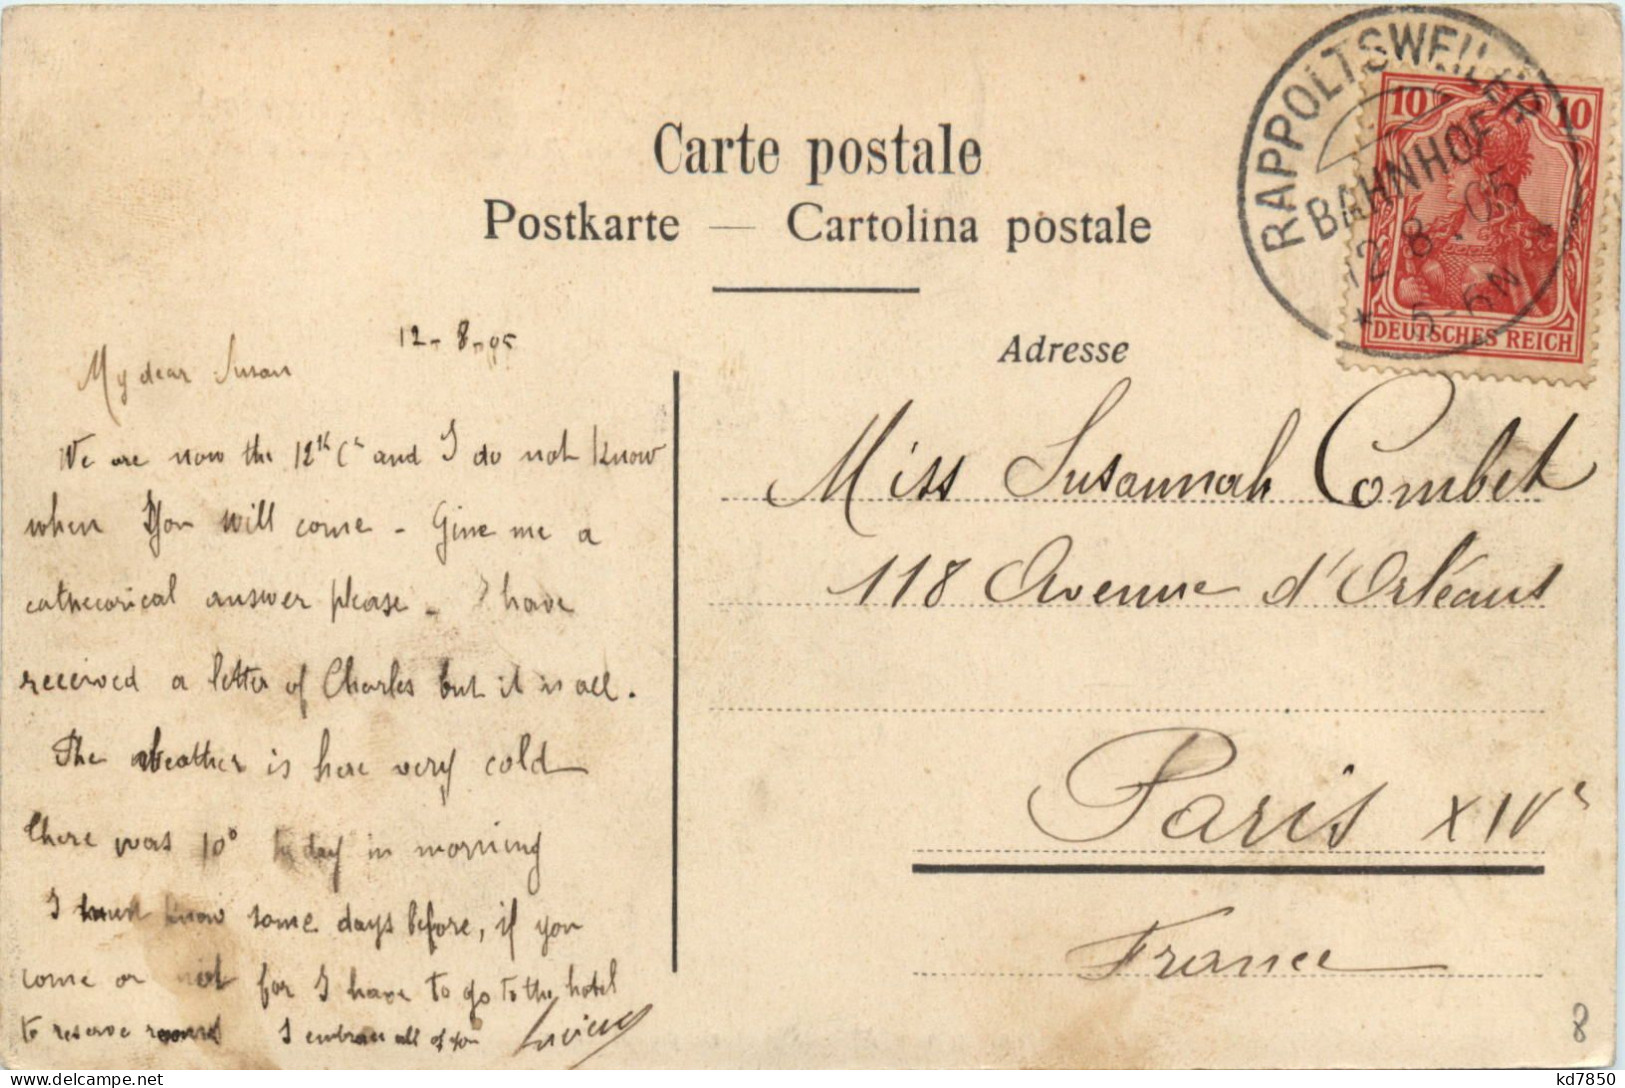 Carte postale
Postkarte — Cartolina postale
RAPPOLTSWEILER
BAHNHOF
12 8. 05
* 5-6N *
10 10
DEUTSCHES REICH
Adresse
12-8-05
My dear Susan
We are now the 12th Ct and I do not know
when You will come - Give me a
cathecorical answer please - I have
received a letter of Charles but it is all.
The weather is here very cold
there was 10° to day in morning
I must know some days before, if you
come or not for I have to go to the hotel
to reserve room I embrace all of you Lucien
Miss Susannah Combet
118 Avenue d'Orléans
Paris XIVe
France
8
kd7850